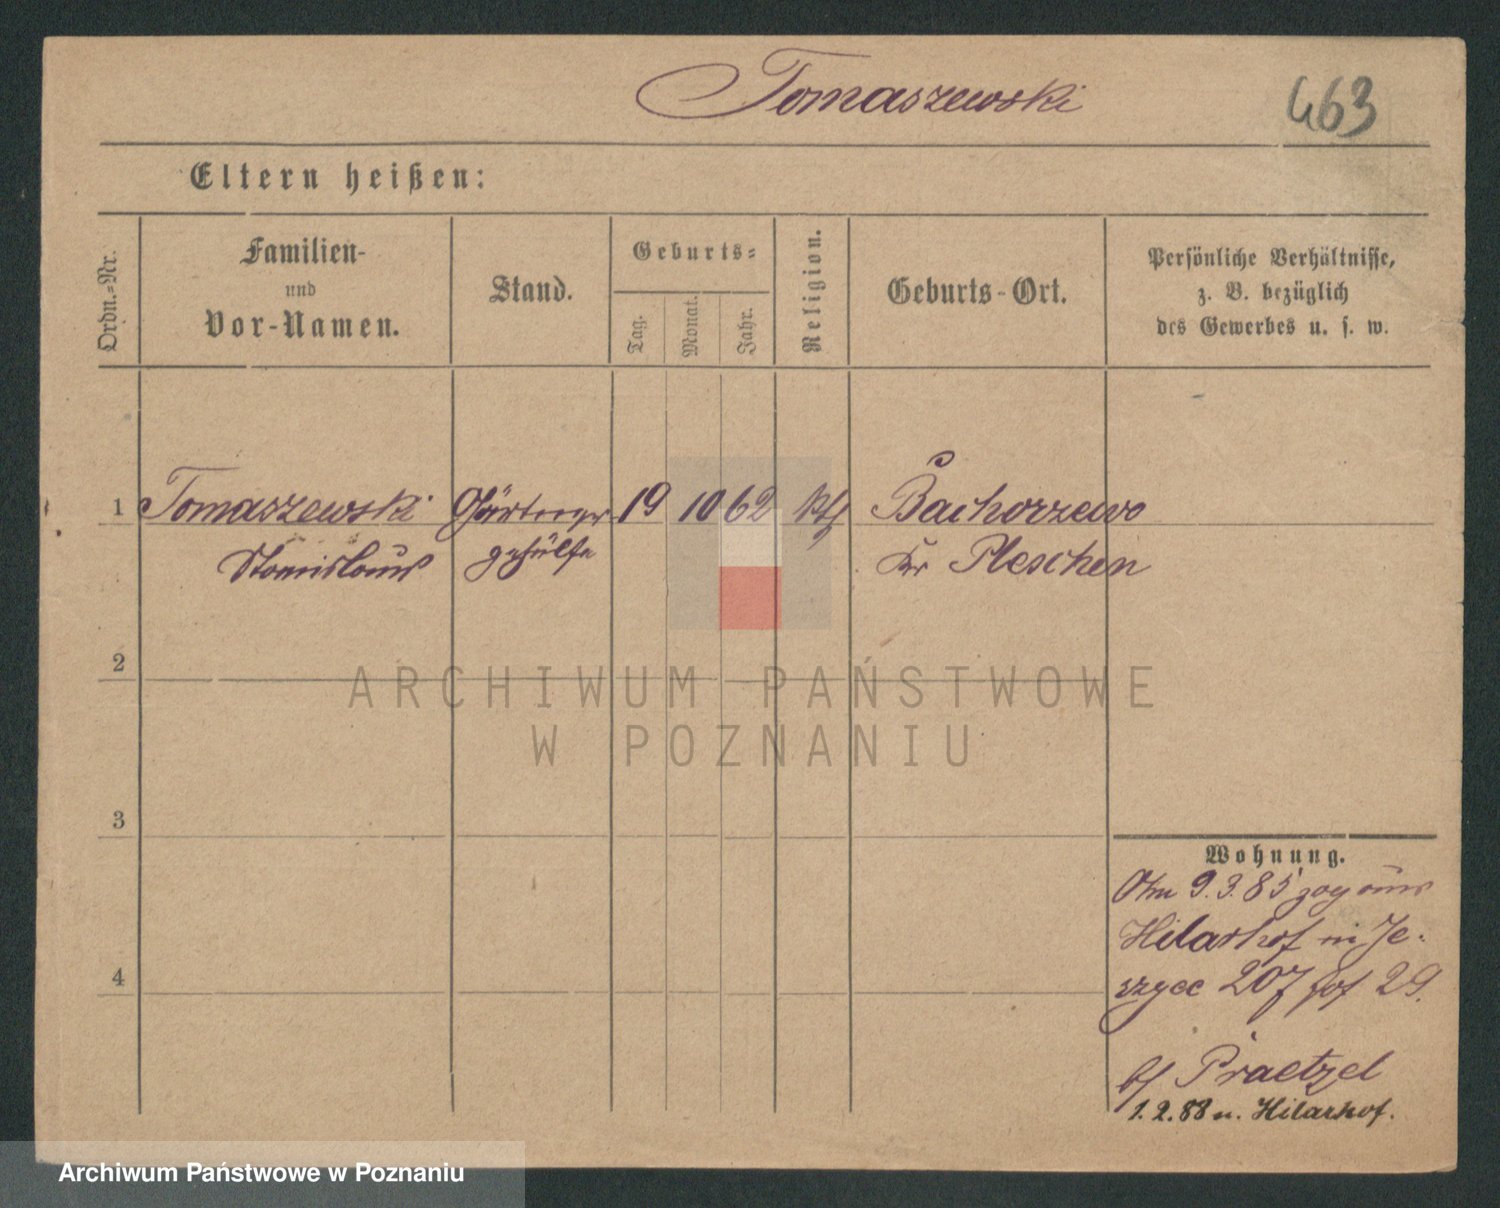 Tomaszewski
463
Eltern heißen:
Ordn.-Nr.
Familien-
und
Vor-Namen.
Stand.
Geburts-
Tag.
Monat.
Jahr.
Religion.
Geburts-Ort.
Persönliche Verhältnisse,
z. B. bezüglich
des Gewerbes u. s. w.
1 Tomaszewski Gärtner 19 10 62 kth Bachorzewo
Stanislaus gehülfe Kr Pleschen
2
3
4
Wohnung.
9.3.85 zog aus
Hilarhof in Je-
rzyce 207 29.
bei Praetzel
1.2.88 n. Hilarhof.
ARCHIWUM PAŃSTWOWE
W POZNANIU
Archiwum Państwowe w Poznaniu